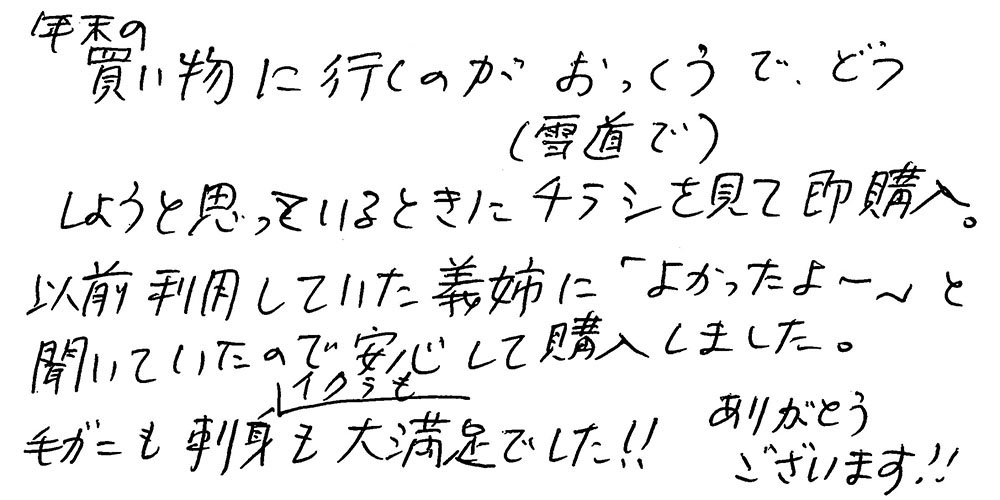 年末の
買い物に行くのがおっくうで、どう
(雪道で)
しようと思っているときにチラシを見て即購入。
以前利用していた義姉に「よかったよ〜」と
聞いていたので安心して購入しました。
イクラも
毛ガニも刺身も大満足でした!!
ありがとう
ございます!!